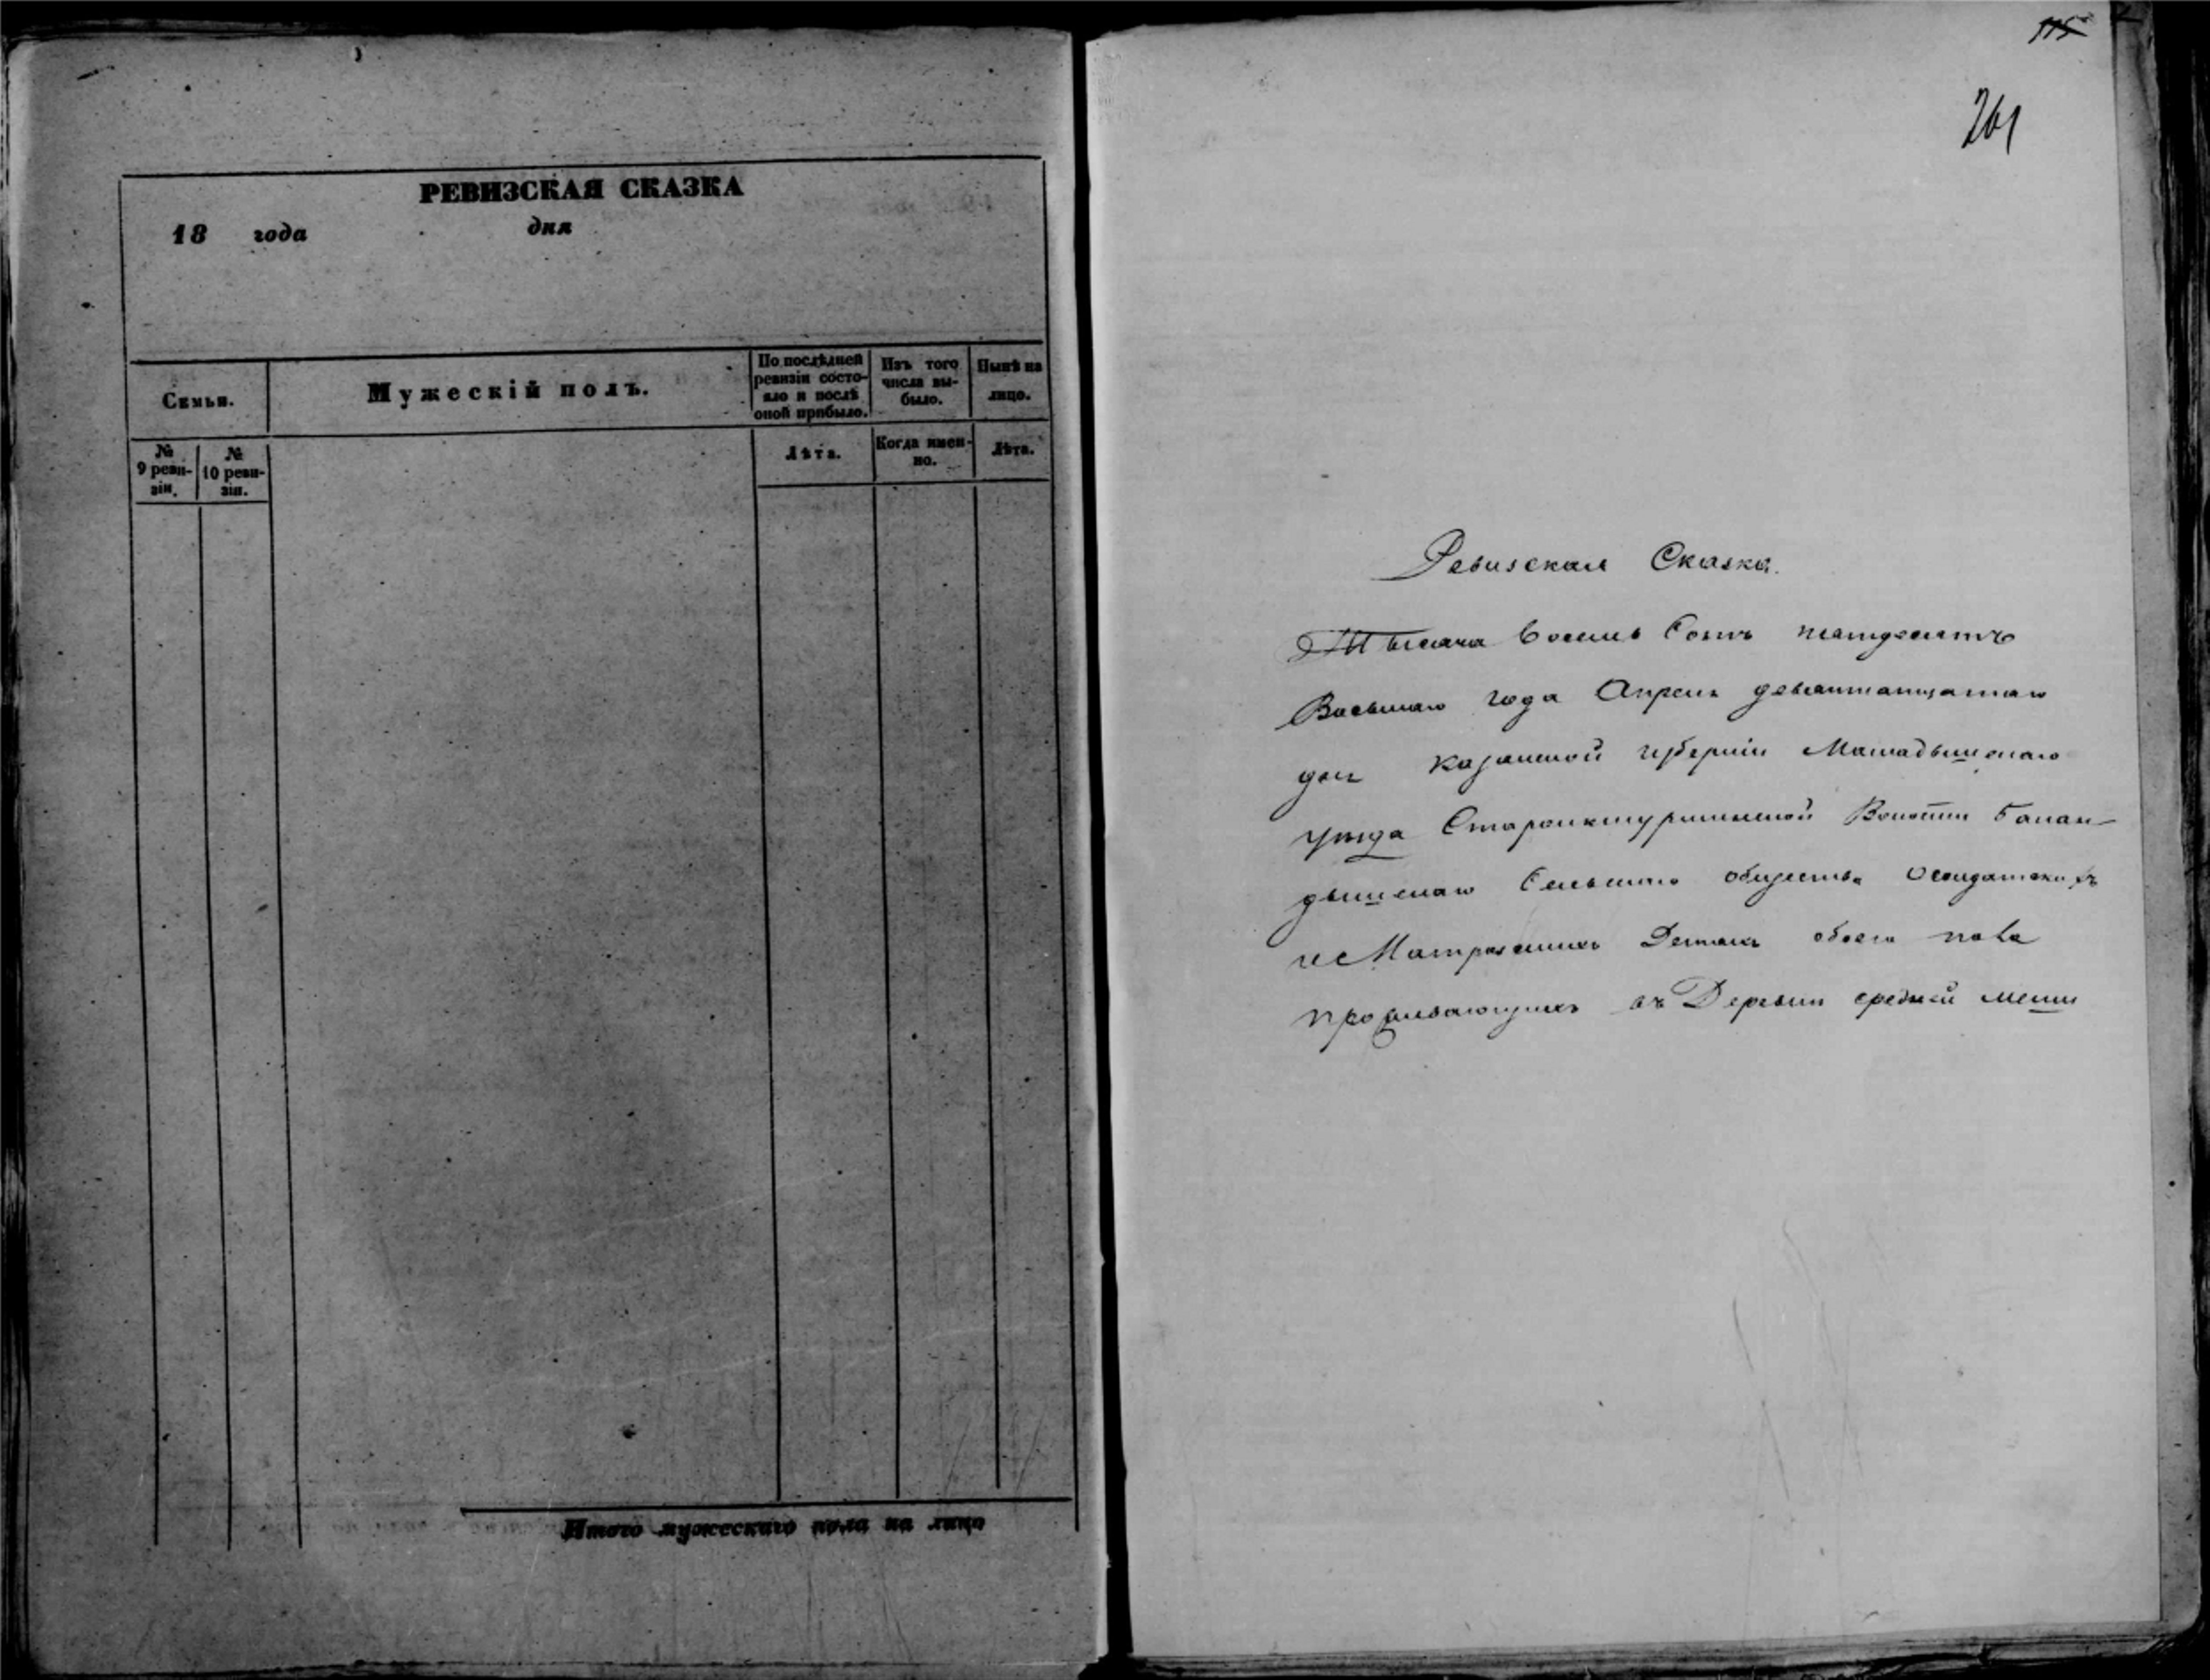 РЕВИЗСКАЯ СКАЗКА
18 года дня
Семьи.
Мужескій полъ.
По послѣдней ревизіи состо-
яло и послѣ
оной прибыло.
Изъ того
числа вы-
было.
Нынѣ на
лицо.
№
9 реви-
зіи.
№
10 реви-
зіи.
Лѣта.
Когда имен-
но.
Лѣта.
Итого мужескаго пола на лицо
115
261
Ревизская Сказка.
Тысяча восемь Сотъ пятдесятъ
Восьмаго года Апреля девятнатцатаго
дня Казанской губерніи Мамадышскаго
уѣзда Староиктурминской Волости Балан-
дышскаго Сельскаго общества Солдатскихъ
и Матроскихъ Детяхъ обоего пола
проживающихъ въ Деревни средней меши